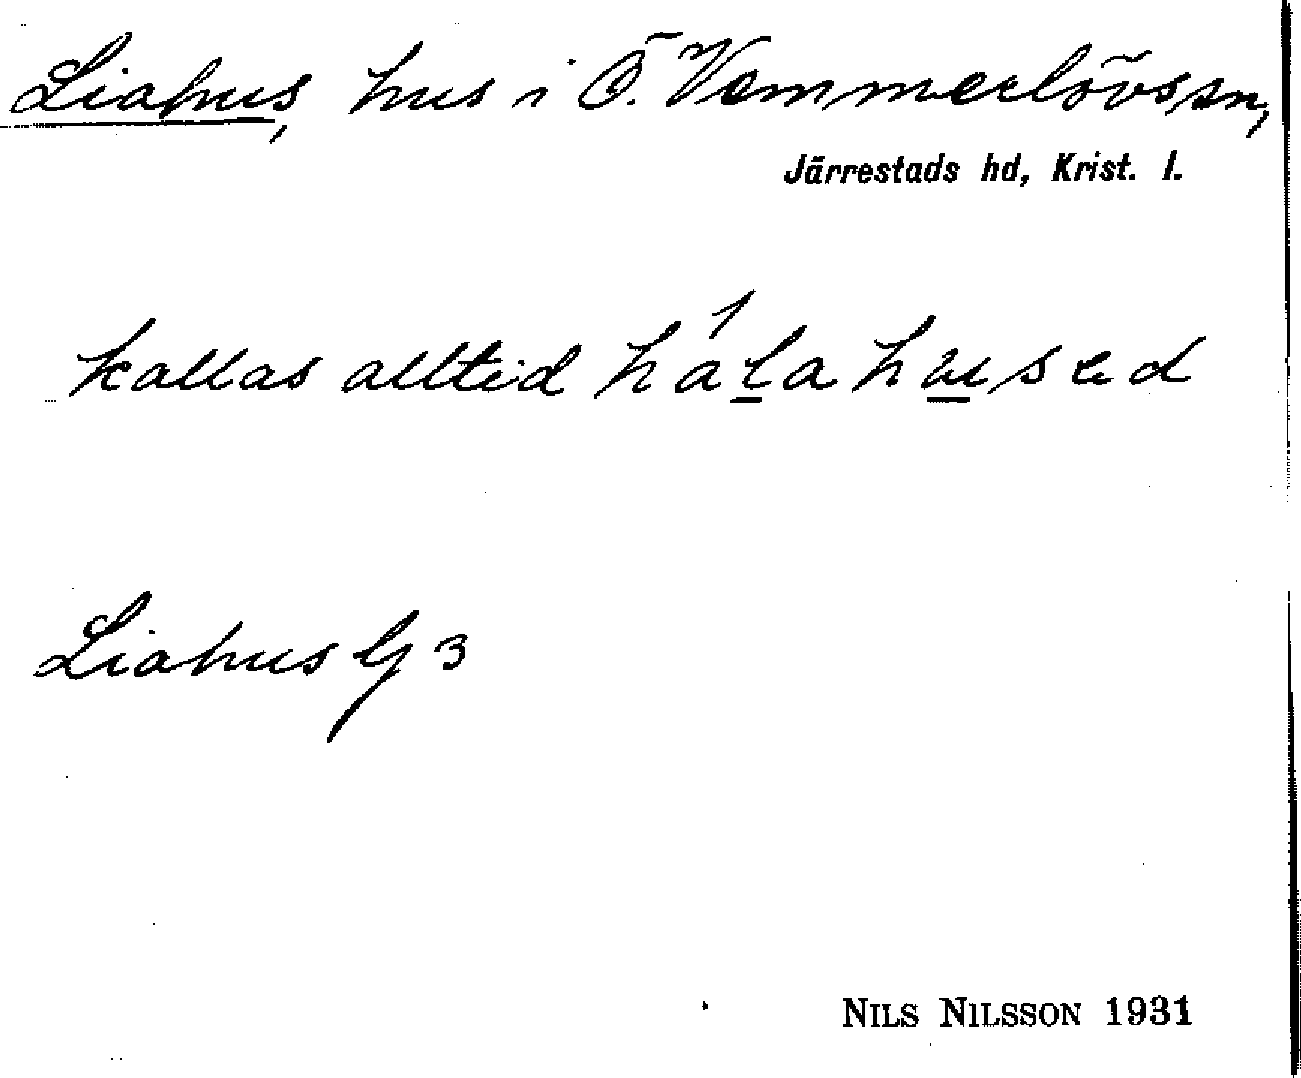 Liahus, hus i Ö. Vemmerlövs sn,
Järrestads hd, Krist. l.
kallas alltid hálahused
Liahus G 3
NILS NILSSON 1931